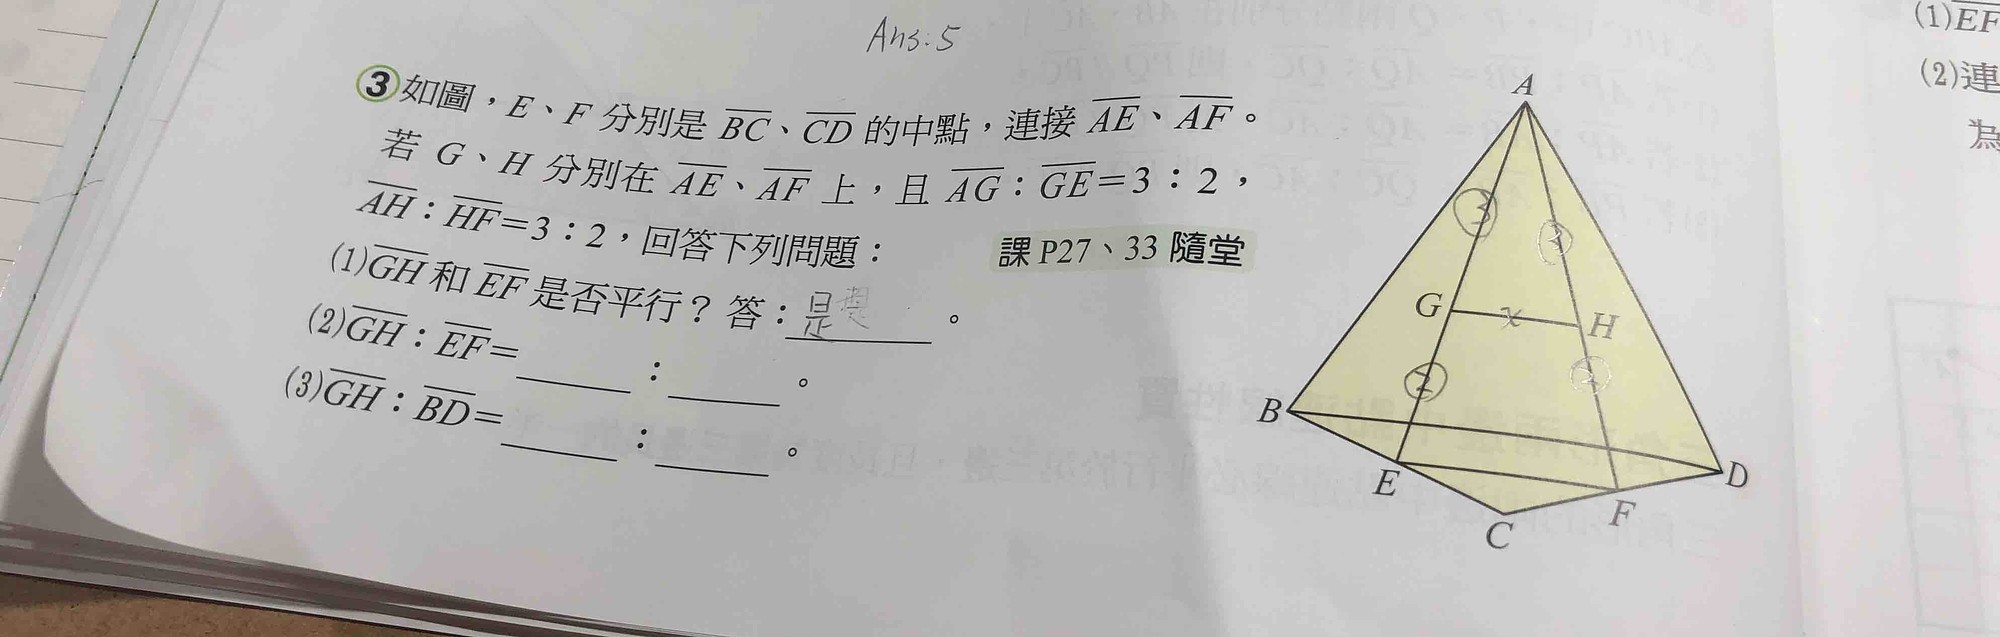 Ans:5
③如圖，E、F 分別是 BC、CD 的中點，連接 AE、AF。
若 G、H 分別在 AE、AF 上，且 AG：GE=3：2，
AH：HF=3：2，回答下列問題：
課 P27、33 隨堂
(1)GH 和 EF 是否平行？答：是 。
(2)GH：EF=____：____。
(3)GH：BD=____：____。
A
3
3
G
x
H
2
2
B
D
E
F
C
(1)EF
(2)連
為